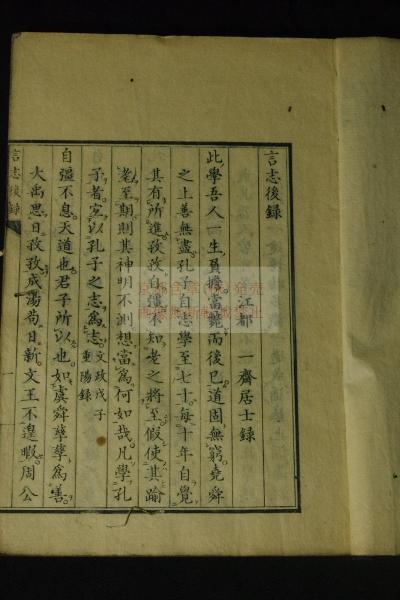 言志後録
江都　一齋居士録
此學吾人一生負擔當斃而後已道固無窮堯舜
之上善無盡孔子自志學至七十每十年自覺
其有所進孜孜自彊不知老之將至假使其踰
耄至期則其神明不測想當爲何如哉凡學孔
子者宜以孔子之志爲志文政戊子
重陽録
自彊不息天道也君子所以也如虞舜孳孳爲善
大禹思日孜孜成湯苟日新文王不遑暇周公
言志後録
一